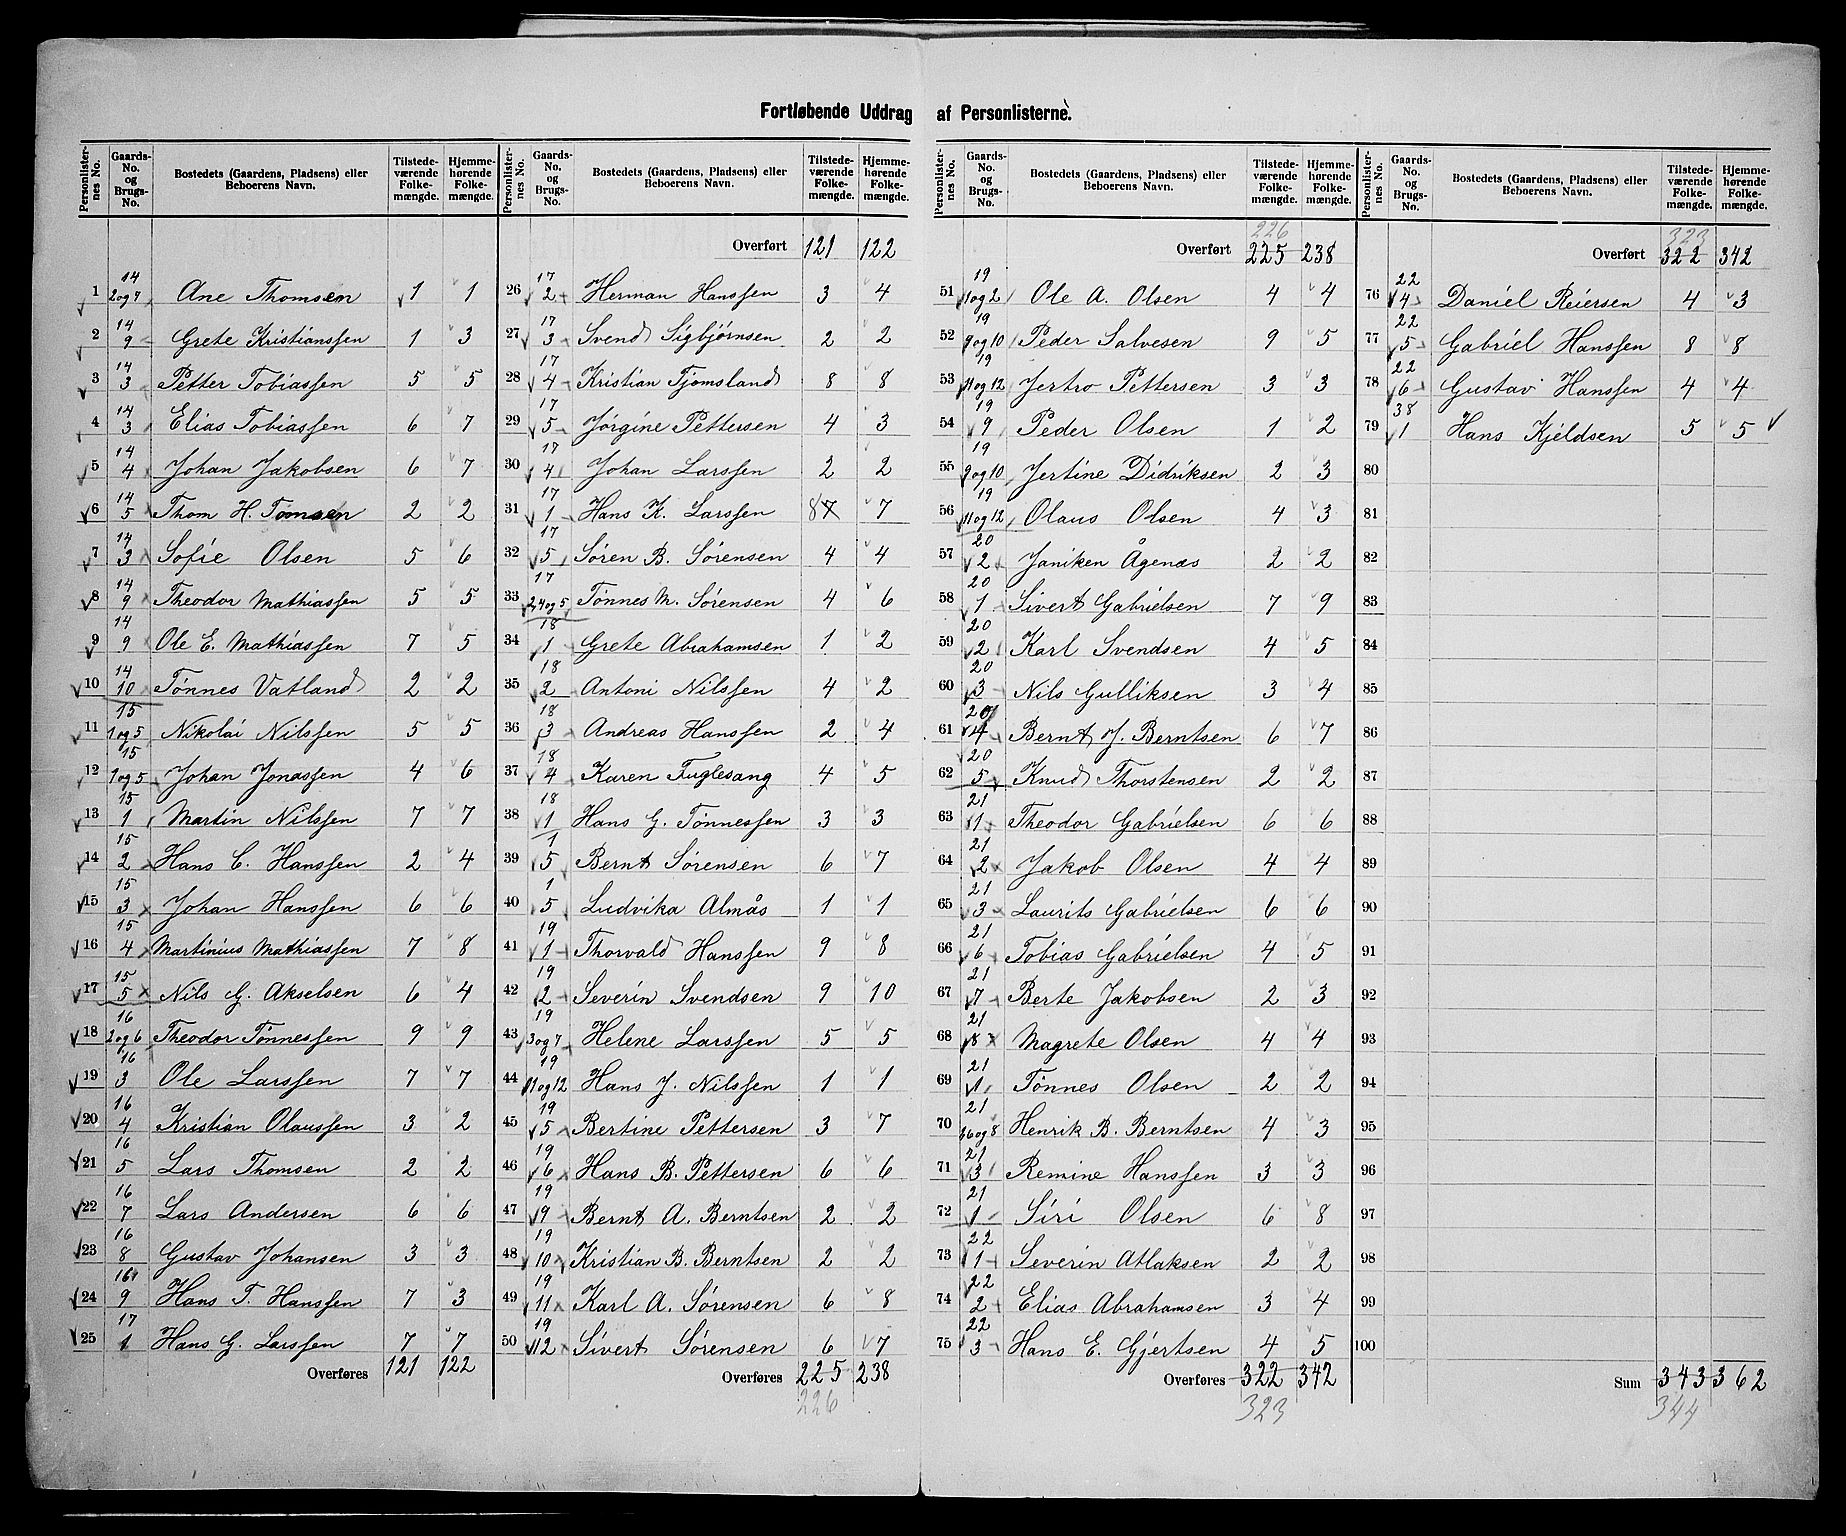 Fortløbende Uddrag af Personlisterne.
Personlister-nes No. | Gaards-No. og Brugs-No. | Bostedets (Gaardens, Pladsens) eller Beboerens Navn. | Tilstede-værende Folke-mængde. | Hjemme-hørende Folke-mængde.
1 | 14 2og7 | Ane Thomsen | 1 | 1
2 | 14 9 | Grete Kristianssen | 1 | 3
3 | 14 3 | Petter Tobiassen | 5 | 5
4 | 14 3 | Elias Tobiassen | 6 | 7
5 | 14 4 | Johan Jakobsen | 6 | 7
6 | 14 5 | Thom H. Tomsen | 2 | 2
7 | 14 3 | Sofie Olsen | 5 | 6
8 | 14 9 | Theodor Mathiassen | 5 | 5
9 | 14 9 | Ole E. Mathiassen | 7 | 5
10 | 14 10 | Tønnes Vatland | 2 | 2
11 | 15 1og5 | Nikolai Nilssen | 5 | 5
12 | 15 1og5 | Johan Jonassen | 4 | 6
13 | 15 1 | Martin Nilssen | 7 | 7
14 | 15 2 | Hans C. Hanssen | 2 | 4
15 | 15 3 | Johan Hanssen | 6 | 6
16 | 15 4 | Martinius Mathiassen | 7 | 8
17 | 15 5 | Nils G. Akselsen | 6 | 4
18 | 16 2og6 | Theodor Tønnessen | 9 | 9
19 | 16 3 | Ole Larssen | 7 | 7
20 | 16 4 | Kristian Olaussen | 3 | 2
21 | 16 5 | Lars Thomsen | 2 | 2
22 | 16 7 | Lars Andersen | 6 | 6
23 | 16 8 | Gustav Johansen | 3 | 3
24 | 16 9 | Hans T. Hanssen | 7 | 3
25 | 17 1 | Hans G. Larssen | 7 | 7
Overføres 121 | 122
Personlister-nes No. | Gaards-No. og Brugs-No. | Bostedets (Gaardens, Pladsens) eller Beboerens Navn. | Tilstede-værende Folke-mængde. | Hjemme-hørende Folke-mængde.
Overført 121 | 122
26 | 17 2 | Herman Hanssen | 3 | 4
27 | 17 3 | Svend Sigbjørnsen | 2 | 2
28 | 17 4 | Kristian Tjomsland | 8 | 8
29 | 17 5 | Jørgine Pettersen | 4 | 3
30 | 17 4 | Johan Larssen | 2 | 2
31 | 17 1 | Hans K. Larssen | 8 7 | 7
32 | 17 5 | Søren B. Sørensen | 4 | 4
33 | 17 2,4og5 | Tønnes M. Sørensen | 4 | 6
34 | 18 1 | Grete Abrahamsen | 1 | 2
35 | 18 2 | Antoni Nilssen | 4 | 2
36 | 18 3 | Andreas Hanssen | 2 | 4
37 | 18 4 | Karen Fuglesang | 4 | 5
38 | 18 1 | Hans G. Tønnessen | 3 | 3
39 | 1 5 | Bernt Sørensen | 6 | 7
40 | 1 5 | Ludvika Almås | 1 | 1
41 | 19 1 | Thorvald Hanssen | 9 | 8
42 | 19 2 | Severin Svendsen | 9 | 10
43 | 19 3og7 | Helene Larssen | 5 | 5
44 | 19 11og12 | Hans J. Nilssen | 1 | 1
45 | 19 5 | Bertine Pettersen | 3 | 7
46 | 19 6 | Hans B. Pettersen | 6 | 6
47 | 19 9 | Bernt A. Berntsen | 2 | 2
48 | 19 10 | Kristian B. Berntsen | 2 | 2
49 | 19 11 | Karl A. Sørensen | 6 | 8
50 | 19 12 | Sivert Sørensen | 6 | 7
Overføres 225 | 238
226
Personlister-nes No. | Gaards-No. og Brugs-No. | Bostedets (Gaardens, Pladsens) eller Beboerens Navn. | Tilstede-værende Folke-mængde. | Hjemme-hørende Folke-mængde.
226
Overført 225 | 238
51 | 19 1og2 | Ole A. Olsen | 4 | 4
52 | 19 9og10 | Peder Salvesen | 9 | 5
53 | 19 11og12 | Jertro Pettersen | 3 | 3
54 | 19 9 | Peder Olsen | 1 | 2
55 | 19 9og10 | Jertine Didriksen | 2 | 3
56 | 19 11og12 | Olaus Olsen | 4 | 3
57 | 20 2 | Janiken Ågenæs | 2 | 2
58 | 20 1 | Sivert Gabrielsen | 7 | 9
59 | 20 2 | Karl Svendsen | 4 | 5
60 | 20 3 | Nils Gulliksen | 3 | 4
61 | 20 4 | Bernt J. Berntsen | 6 | 7
62 | 20 5 | Knud Thorstensen | 2 | 2
63 | 21 1 | Theodor Gabrielsen | 6 | 6
64 | 21 2 | Jakob Olsen | 4 | 4
65 | 21 3 | Laurits Gabrielsen | 6 | 6
66 | 21 6 | Tobias Gabrielsen | 4 | 5
67 | 21 7 | Berte Jakobsen | 2 | 3
68 | 21 8 | Magrete Olsen | 4 | 4
69 | 21 1 | Tønnes Olsen | 2 | 2
70 | 21 6og8 | Henrik B. Berntsen | 4 | 3
71 | 21 3 | Remine Hanssen | 3 | 3
72 | 21 1 | Siri Olsen | 6 | 8
73 | 22 1 | Severin Atlaksen | 2 | 2
74 | 22 2 | Elias Abrahamsen | 3 | 4
75 | 22 3 | Hans E. Gjertsen | 4 | 5
Overføres 322 | 342
323
Personlister-nes No. | Gaards-No. og Brugs-No. | Bostedets (Gaardens, Pladsens) eller Beboerens Navn. | Tilstede-værende Folke-mængde. | Hjemme-hørende Folke-mængde.
323
Overført 322 | 342
76 | 22 4 | Daniel Reiersen | 4 | 3
77 | 22 5 | Gabriel Hanssen | 8 | 8
78 | 22 6 | Gustav Hanssen | 4 | 4
79 | 38 1 | Hans Kjeldsen | 5 | 5
80
81
82
83
84
85
86
87
88
89
90
91
92
93
94
95
96
97
98
99
100
Sum 343 | 362
344